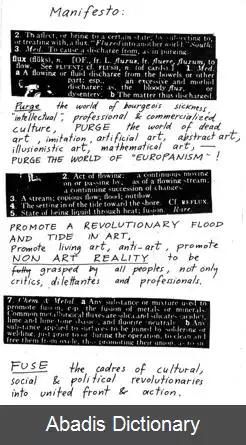 Manifesto:
2. To affect, or to bring to a certain state, by subjecting to,
or treating with, a flux. "Fluxed into another world." South.
3. Med. To cause a discharge from, as in purging.
flux (flŭks), n. [OF., fr. L. fluxus, fr. fluere, fluxum, to
flow. See FLUENT; cf. FLUSH, n. (of cards).] 1. Med.
a A flowing or fluid discharge from the bowels or other
part; esp., an excessive and morbid
discharge; as, the bloody flux, or
dysentery. b The matter thus discharged.
Purge the world of bourgeois sickness,
"intellectual", professional & commercialized
culture, PURGE the world of dead
art, imitation, artificial art, abstract art,
illusionistic art, mathematical art, —
PURGE THE WORLD OF "EUROPANISM"!
2. Act of flowing: a continuous moving
on or passing by, as of a flowing stream;
a continuing succession of changes.
3. A stream; copious flow; flood; outflow.
4. The setting in of the tide toward the shore. Cf. REFLUX.
5. State of being liquid through heat; fusion. Rare.
PROMOTE A REVOLUTIONARY FLOOD
AND TIDE IN ART,
Promote living art, anti-art, promote
NON ART REALITY to be
fully grasped by all peoples, not only
critics, dilettantes and professionals.
7. Chem. & Metal. a Any substance or mixture used to
promote fusion, esp. the fusion of metals or minerals.
Common metallurgical fluxes are silica and silicates (acidic),
lime and limestone (basic), and fluorite (neutral). b Any
substance applied to surfaces to be joined by soldering or
welding, just prior to or during the operation, to clean and
free them from oxide, thus promoting their union, as
FUSE the cadres of cultural,
social & political revolutionaries
into united front & action.
Abadis Dictionary